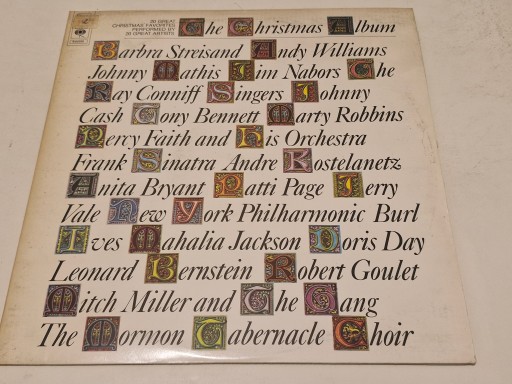 20 GREAT
CHRISTMAS FAVORITES
PERFORMED BY
20 GREAT ARTISTS
The Christmas Album
Barbra Streisand Andy Williams
Johnny Mathis Jim Nabors The
Ray Conniff Singers Johnny
Cash Tony Bennett Marty Robbins
Percy Faith and His Orchestra
Frank Sinatra Andre Kostelanetz
Anita Bryant Patti Page Jerry
Vale New York Philharmonic Burl
Ives Mahalia Jackson Doris Day
Leonard Bernstein Robert Goulet
Mitch Miller and The Gang
The Mormon Tabernacle Choir